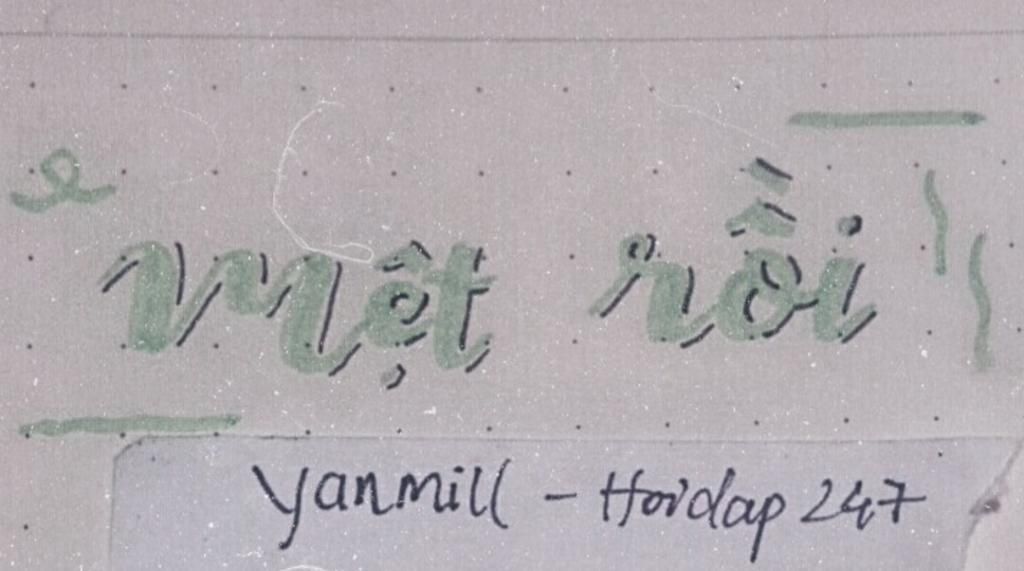 mệt rồi
Yanmill - Hoidap 247